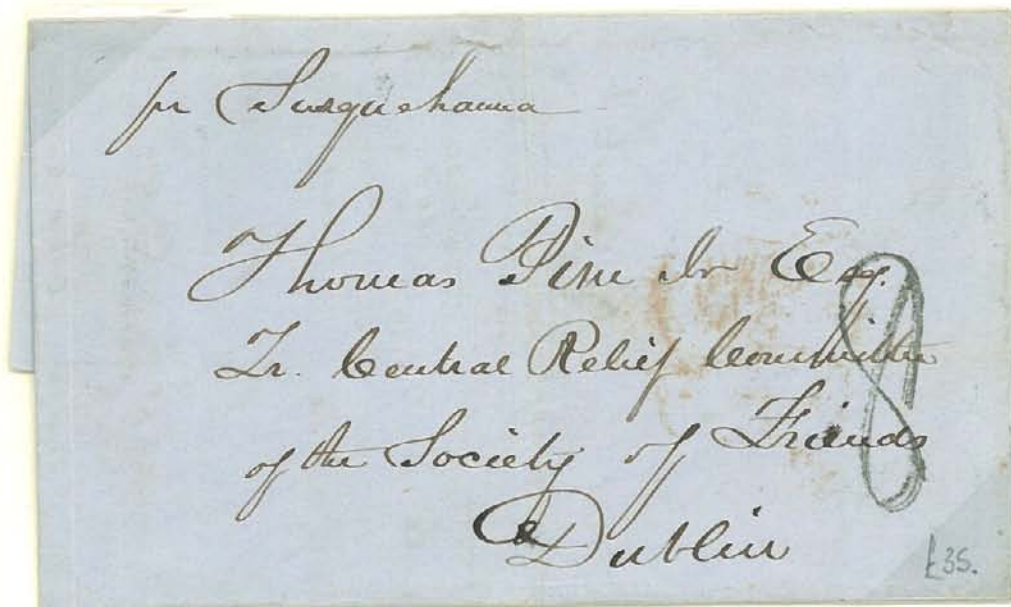 pr Susquehanna
Thomas Pim Jr Esq.
Tr. Central Relief Committee
of the Society of Friends
Dublin
8
£35.